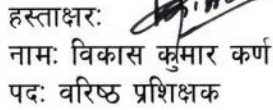 हस्ताक्षरः
नामः विकास कुमार कर्ण
पदः वरिष्ठ प्रशिक्षक